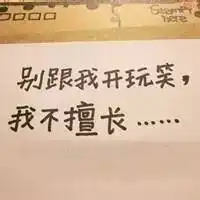 别跟我开玩笑，
我不擅长……